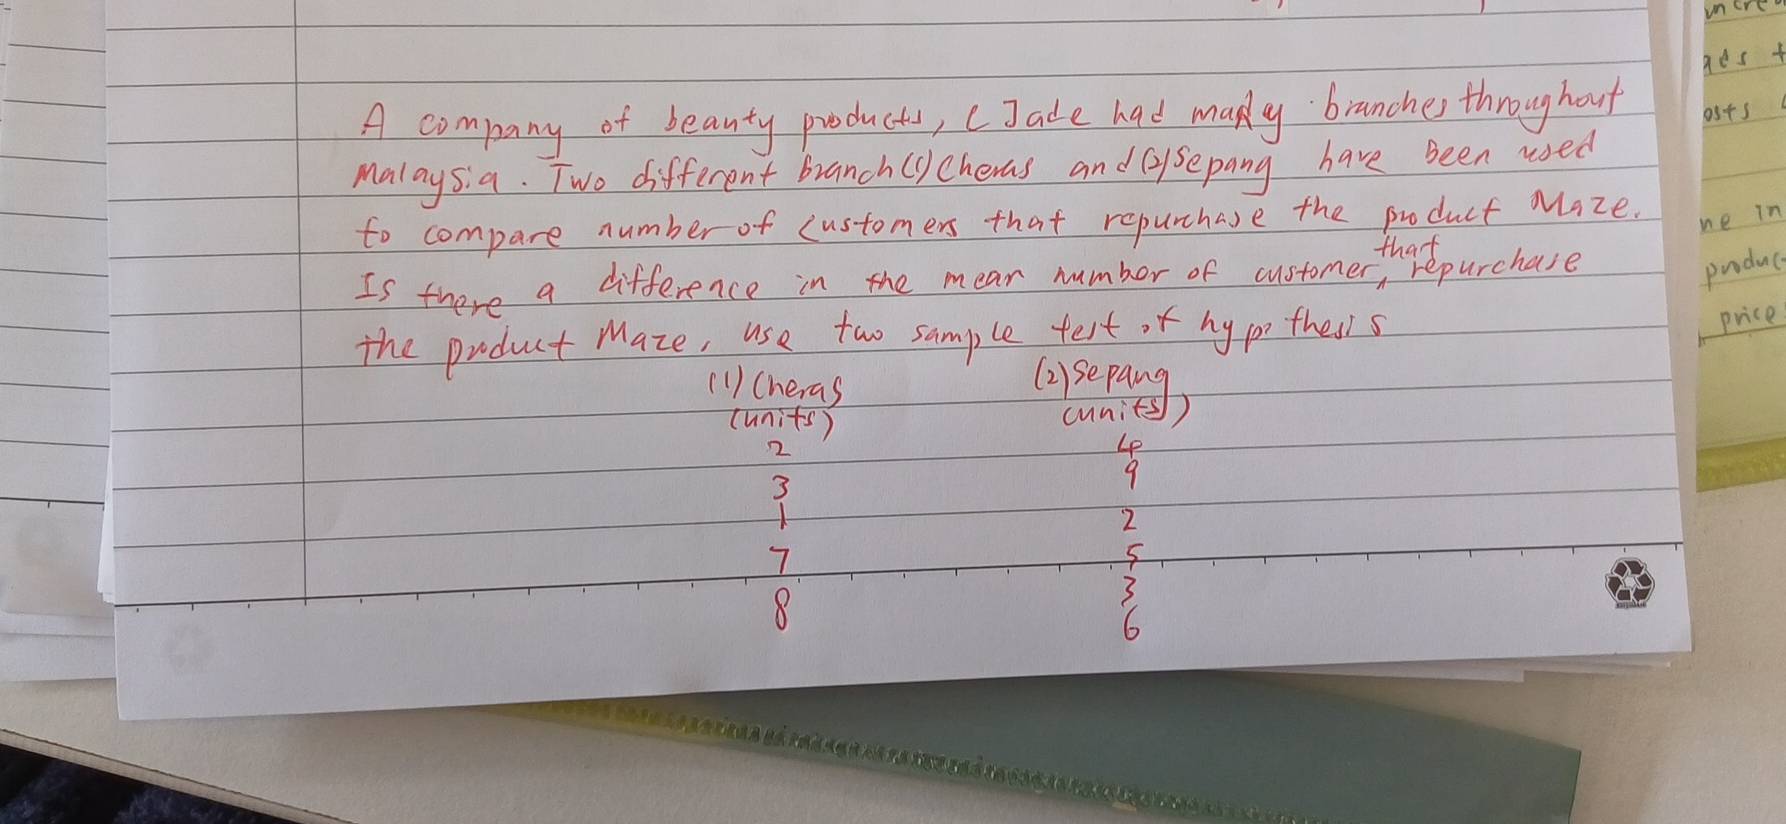 A company of beauty products, CJade had many branches throughout
Malaysia. Two different branch (1) Cheras and (2) Sepang have been used
to compare number of customers that repurchase the product Maze.
Is there a difference in the mean number of customer that repurchase
the product Maze, use two sample test of hypothesis
(1) Cheras (2) Sepang
(units) (units)
2 4
3 9
1 2
7 5
8 3
6
ads
osts
ne in
produc
price